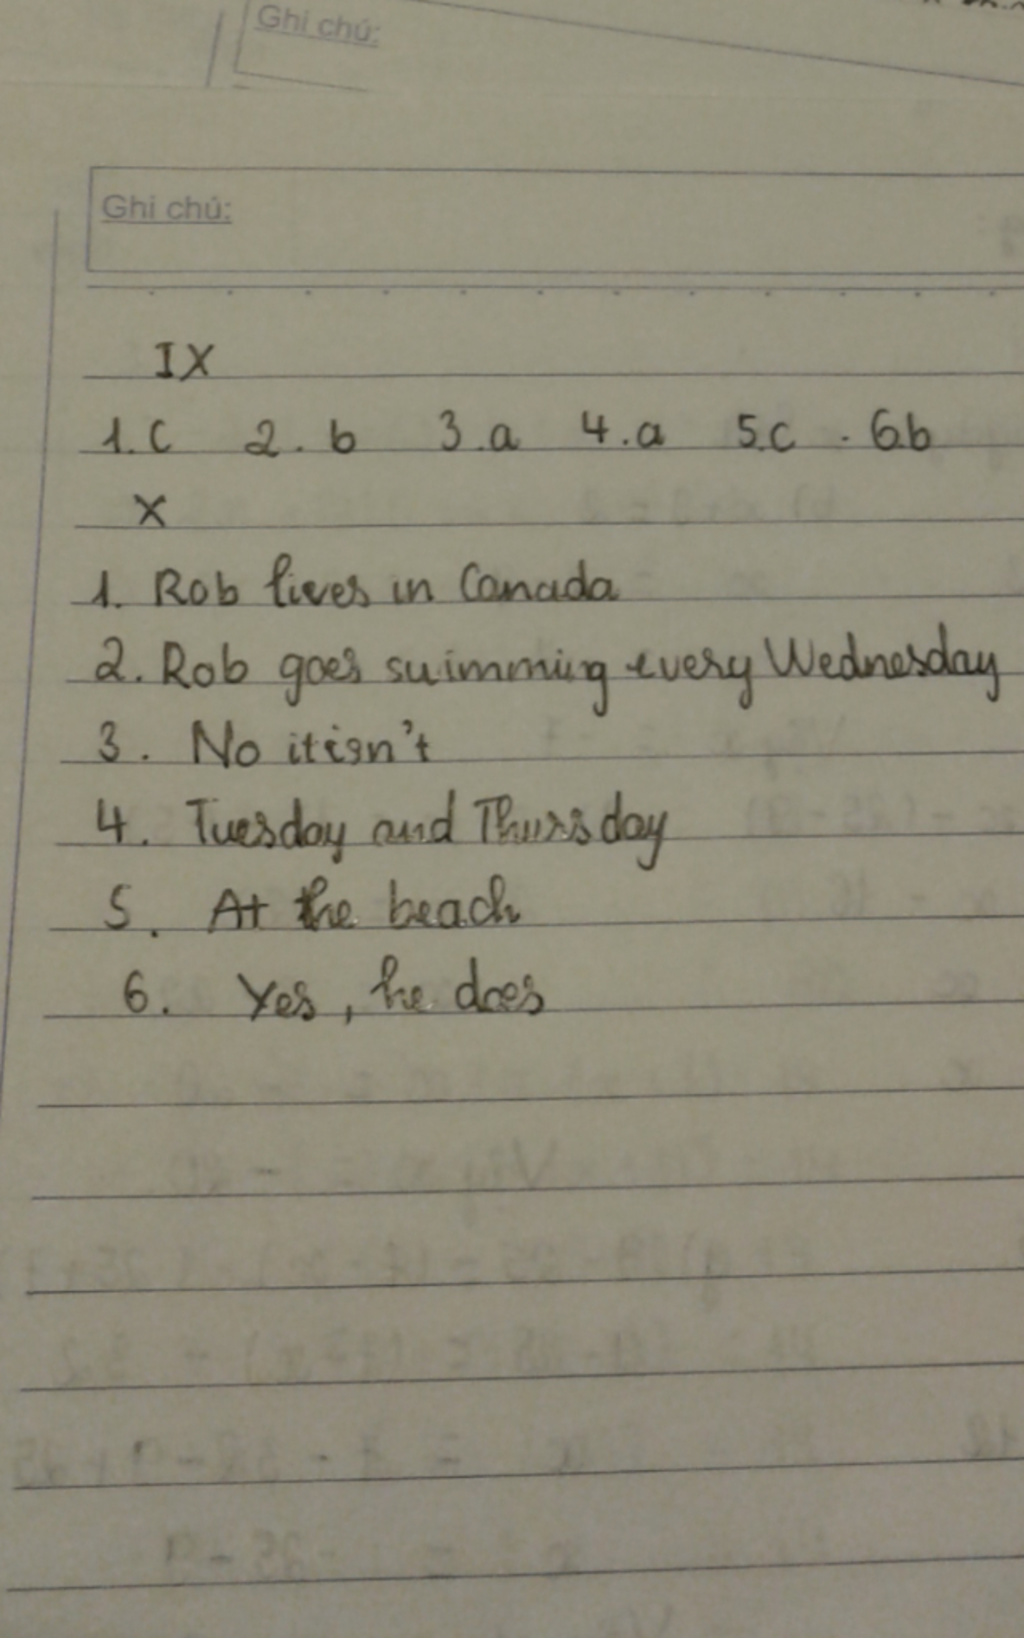 Ghi chú:
Ghi chú:
IX
1.c 2.b 3.a 4.a 5.c . 6.b
X
1. Rob lives in Canada
2. Rob goes swimming every Wednesday
3. No it isn't
4. Tuesday and Thursday
5. At the beach
6. Yes, he does